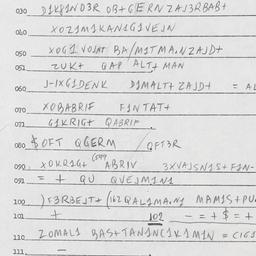 030 D1K8IND3R OB+GERNZAJ3RBAB+
040 XOZ1M1KANIG1VEJN
050 XOG1 VOJAT BA/M1TMA.NZAJD+
051 ZUK+ GAP ALT+ MAN
060 J-IXG1DENK D1MALT+ ZAJD+ = AL
070 XOBABRIF F1NTAT+
071 G1KRIG+ QABRIF
080 $OFT QGERM / QFT3R
090 XOKR1G+ ABRIV 3XVAJSN1S+F1N-
091 = + QU QVEJM1N1
100 )F3R3EJT+(162QAL1MA.NJ MAM1S+PU.
101 + 102 - = + $ = +
110 ZOMAL1 BAS+TAN1NC1K1M1N = C1G1
111 -